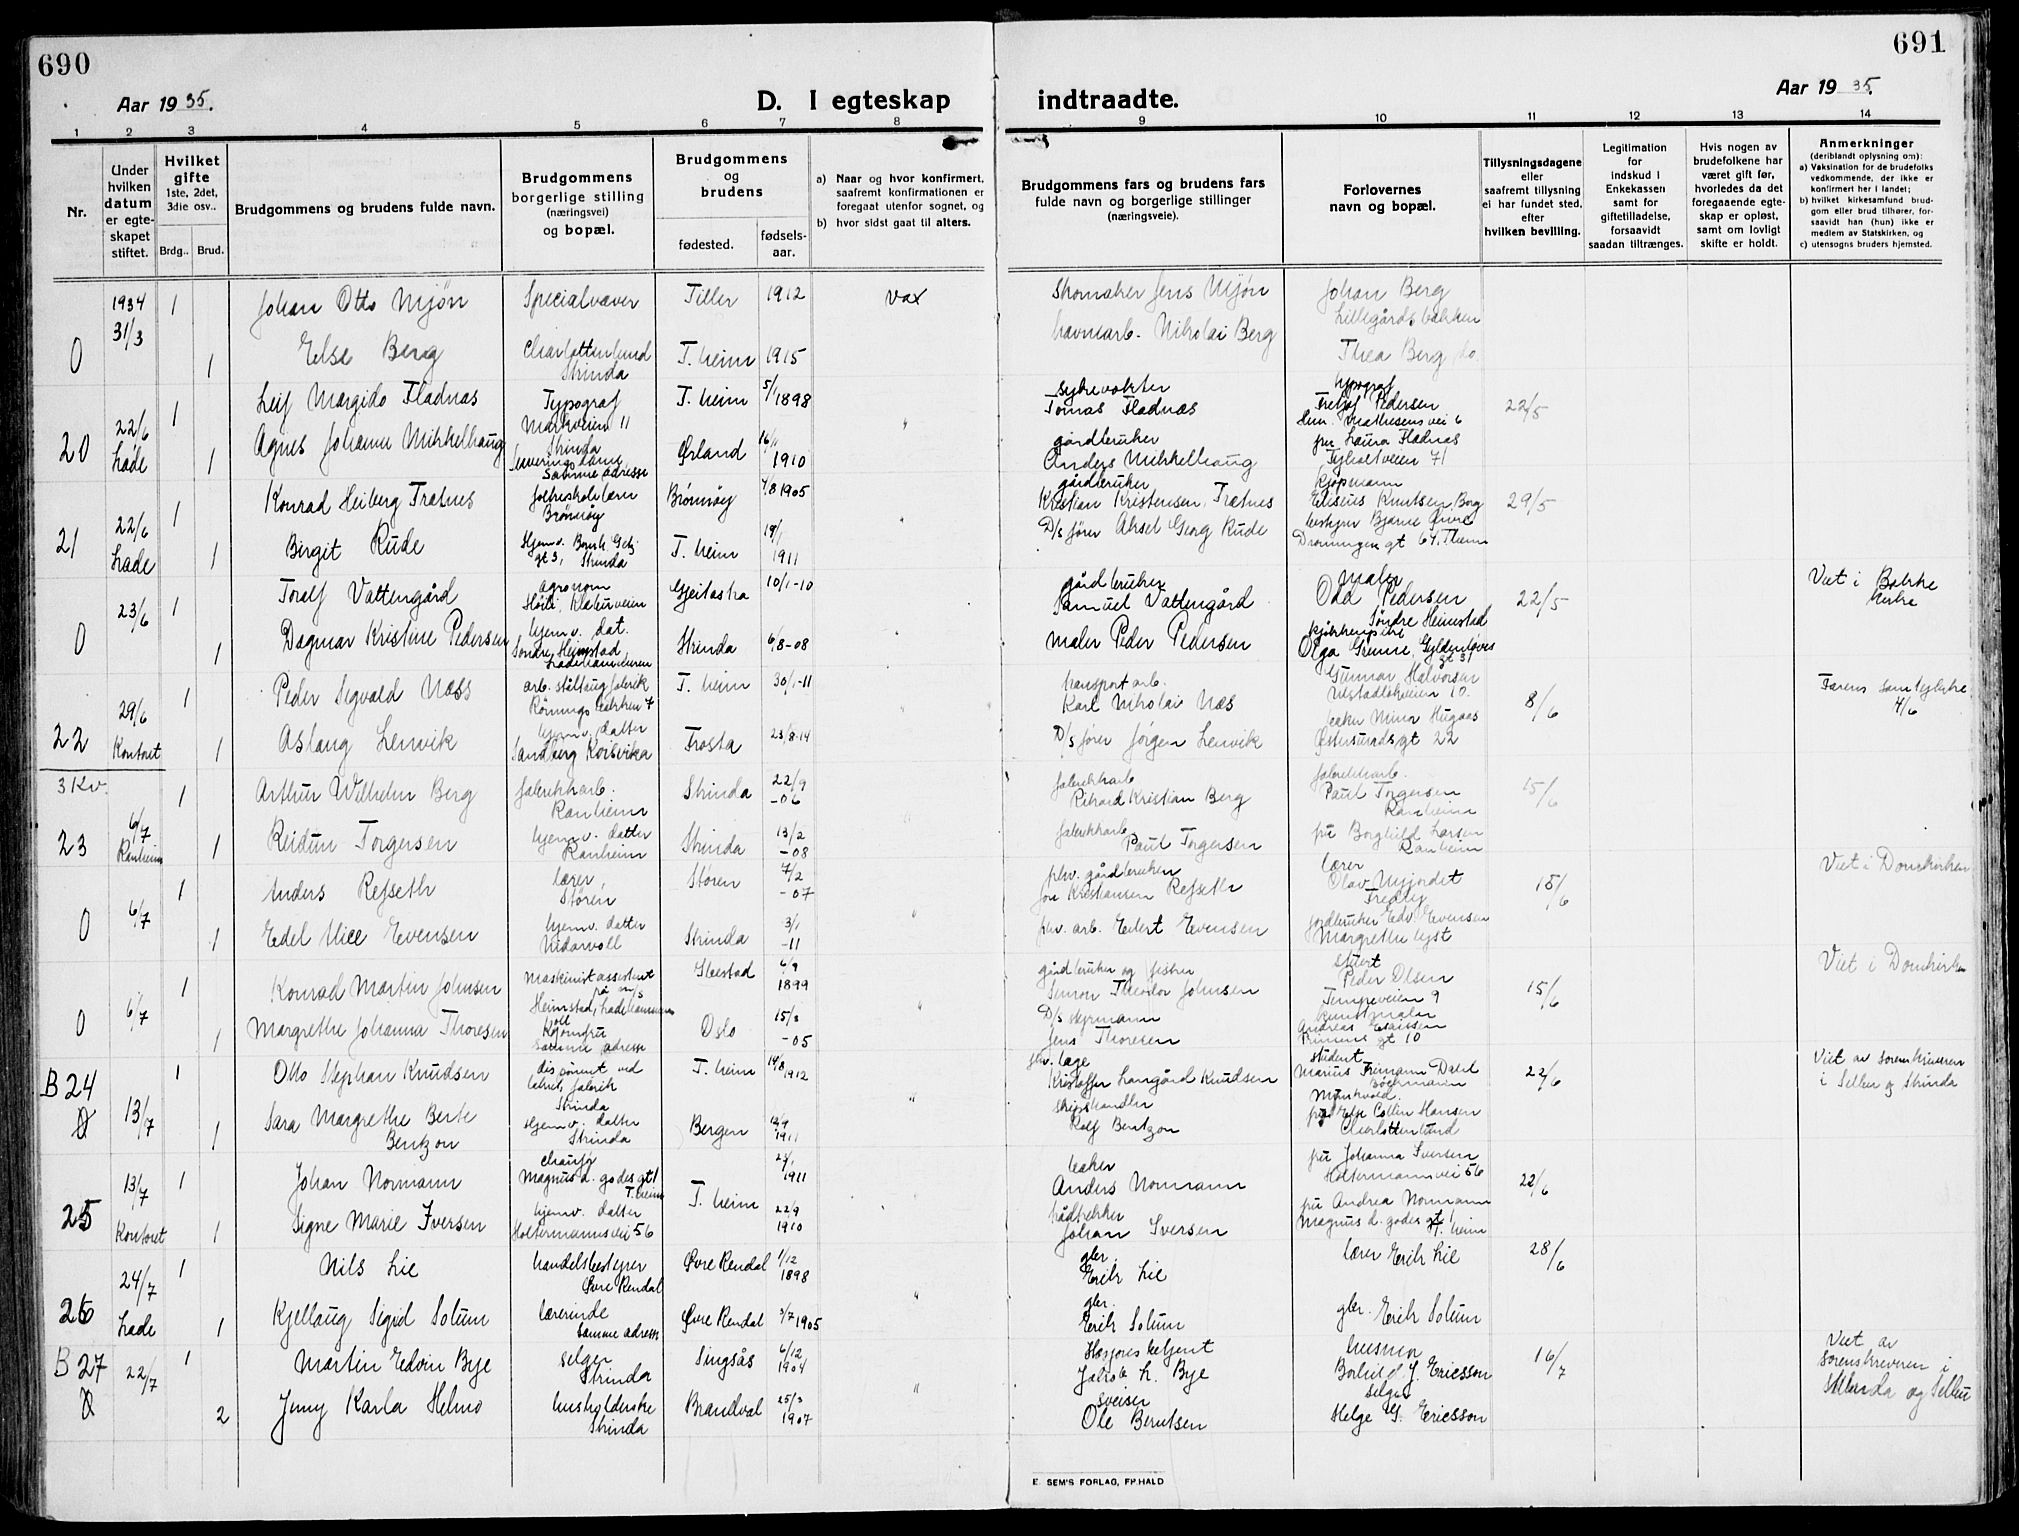 690
691
Aar 1935.
D. I egteskap indtraadte.
Aar 1935.
1 2 3 4 5 6 7 8 9 10 11 12 13 14
Nr.
Under hvilken datum er egteskapet stiftet.
Hvilket gifte
1ste, 2det, 3die osv..
Brdg.. Brud.
Brudgommens og brudens fulde navn.
Brudgommens borgerlige stilling (næringsvei) og bopæl.
Brudgommens og brudens
fødested. fødselsaar.
a) Naar og hvor konfirmert, saafremt konfirmationen er foregaat utenfor sognet, og
b) hvor sidst gaat til alters.
Brudgommens fars og brudens fars fulde navn og borgerlige stillinger (næringsveie).
Forlovernes navn og bopæl.
Tillysningsdagene eller saafremt tillysning ei har fundet sted, efter hvilken bevilling.
Legitimation for indskud i Enkekassen samt for giftetilladelse, forsaavidt saadan tiltrænges.
Hvis nogen av brudefolkene har været gift før, hvorledes da det foregaaende egteskap er opløst, samt om lovligt skifte er holdt.
Anmerkninger (deriblandt oplysning om):
a) Vaksination for de brudefolks vedkommende, der ikke er konfirmert her i landet;
b) hvilket kirkesamfund brudgom eller brud tilhører, forsaavidt han (hun) ikke er medlem av Statskirken, og
c) utensogns bruders hjemsted.
0 1934 31/3 1 Johan Otto Mjøn Specialvæver Tiller 1912 vax Skomaker Jens Mjøn Johan Berg
Lillegårdsbakken
1 Else Berg Charlottenlund Strinda T.heim 1915 havnearb. Nikolai Berg Thea Berg do.
20 22/6 Lade 1 Leif Margido Fladnas Typograf Markveien 11 Strinda T.heim 5/1 1898 Tomas Fladnas typograf Fretjof Pedersen 22/5
1 Agnes Johanne Mikkelhaug Samme adresse Ørland 16/1 1910 gårdbruker Anders Mikkelhaug fru Laura Fladnas Tyholtveien 71
21 22/6 Lade 1 Konrad Heiberg Trætnes Brønnøy Brønnøy 1905 gårdbruker Kristian Kristensen Trætnes kjøpmann Eliseus Knutsen, Borg 29/5
1 Birgit Rude Hjemv. Strinda T.heim 19/1 1911 D/s fører Aksel Georg Rude Bjarne Dronningens gt 64, T.heim
0 23/6 1 Toralf Vattengård agronom 10/1-10 gårdbruker Samuel Vattengård maler Odd Pedersen Søndre Heimstad 22/5 Viet i Bakke kirke
1 Dagmar Kristine Pedersen hjemv. dat. Søndre Heimstad Ladehammeren Strinda 6/8-08 maler Peder Pedersen Olga Gyldenløves gt 31
22 29/6 Kontoret 1 Peder Sigvald Næss arb. T.heim 30/1-11 transportarb. Karl Nikolai Næs Gunnar Halvorsen 10. 8/6 4/6
1 Aslaug Lervik hjemv. datter Sandberg Korsvika Frosta 23/8-14 D/s fører Jørgen Lervik Østersunds gt 22
3 Kv.
23 6/7 Ranheim 1 Arthur Wilhelm Berg fabrikkarb. Ranheim Strinda 22/9-06 fabrikkarb. Rikard Kristian Berg fabrikkarb. Paul Torgersen Ranheim 15/6
1 Reidun Torgersen hjemv. datter Ranheim Strinda 13/2-08 fabrikkarb. Paul Torgersen fru Borghild Larsen Ranheim
0 6/7 1 Anders Refseth lærer, Støren Støren 7/2-07 fhv. gårdbruker Jon Kristiansen Refseth lærer Olav 15/6 Viet i Domkirken
1 Edel Alice Evensen hjemv. datter Nidarvoll Strinda 3/1-11 fhv. arb. Edvert Evensen jordbruker Edv. Evensen
0 6/7 1 Konrad Martin Johnsen maskinistassistent på m/s 6/9 1899 gårdbruker og fisker Simon Theodor Johnsen Peder Olsen Tempeveien 9 15/6 Viet i Domkirken
1 Margrethe Johanna Thoresen samme adresse Oslo 15/3-05 D/s styrmann Jens Thoresen kunstmaler Andreas gt 10
B 24 13/7 1 Otto Stephan Knudsen disponent ved fabrik Strinda T.heim 14/8 1912 fhv. læge Kristoffer Langård Knudsen student 22/6 Viet av sorenskriveren i Selbu og Strinda
1 Sara Margrethe Berle Bentzon Hjemv. datter Strinda Bergen 1911 skipshandler Rolf Bentzon Else Collin Hansen Charlottenlund
25 13/7 Kontoret 1 Johan Normann Magnus d. godes gt 1 T.heim T.heim 1911 baker Anders Normann fru Johanna Iversen Holtermannsvei 56 22/6
1 Signe Marie Iversen hjemv. datter Holtermannsvei 56 22/9 1910 Johan Iversen fru Andrea Normann Magnus d. godes gt 1 T.heim
26 24/7 Lade 1 Nils Lie handelsbestyrer Øvre Rendal Øvre Rendal 1/12 1898 gbr. Erik Lie lærer Erik Lie 28/6
1 Kjellaug Sigrid Solum lærerinde samme adresse Øvre Rendal 3/7 1905 gbr. Erik Solum gbr. Erik Solum
B 27 22/7 1 Martin Edvin Bye selger Strinda Singsås 6/12 1904 Jakob L. Bye husmor Borhild J. Ericsson 16/7 Viet av sorenskriveren i Strinda og Selbu
2 Jenny Karla Helmo husholderske Strinda Brandval 25/3 1907 sveiser Ole Berntsen selger Helge G. Ericsson
E. SEM'S FORLAG, FR.HALD